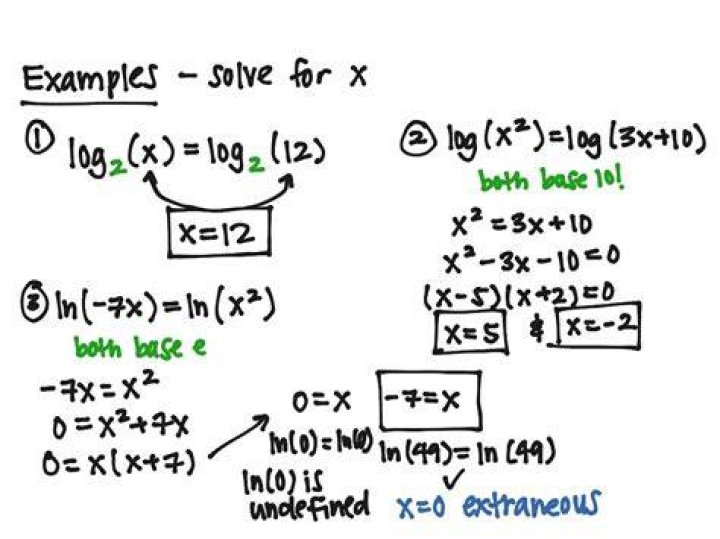 Examples - solve for x
① log₂(x) = log₂(12)
x=12
② log(x²)=log(3x+10)
both base 10!
x²=3x+10
x²-3x-10=0
(x-5)(x+2)=0
x=5 & x=-2
③ ln(-7x)=ln(x²)
both base e
-7x=x²
0=x²+7x
0=x(x+7)
0=x
ln(0)=ln(0)
ln(0) is
undefined
-7=x
ln(49)=ln(49)
✓
x=0 extraneous